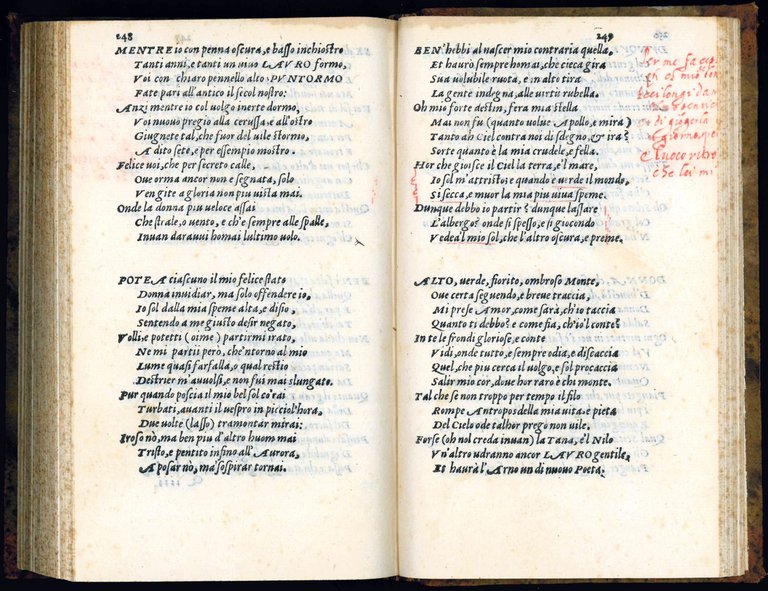 248
MENTRE io con penna oscura, e basso inchiostro
Tanti anni, e tanti un uiuo LAVRO formo,
Voi con chiaro pennello alto PVNTORMO
Fate pari all'antico il secol nostro:
Anzi mentre io col uolgo inerte dormo,
Voi nuouo pregio alla cerussa, e all'ostro
Giugnete tal, che fuor del uile stormo,
A dito sete, e per essempio mostro.
Felice uoi, che per secreto calle,
Oue orma ancor non e segnata, solo
Ven gite a gloria non piu uista mai.
Onde la donna piu ueloce assai
Che strale, o uento, e ch'e sempre alle spalle,
Inuan darauui homai l'ultimo uolo.
POTEA ciascuno il mio felice stato
Donna inuidiar, ma solo offendere io,
Io sol dalla mia speme alta, e disio,
Sentendo a me giusto desir negato,
Volli, e potetti (oime) partirmi irato,
Ne mi partii però, che'ntorno al mio
Lume quasi farfalla, o qual restio
Destrier m'auuolsi, e non fui mai slungato.
Pur quando poscia il mio bel sol co'rai
Turbati, auanti il uespro in picciol'hora,
Due uolte (lasso) tramontar mirai:
Iroso nò, ma ben piu d'altro huom mai
Tristo, e pentito insino all'Aurora,
A posar nò, ma'sospirar tornai.
249
BEN'hebbi al nascer mio contraria quella,
Et haurò sempre homai, che cieca gira
Sua uolubile ruota, e in alto tira
La gente indegna, alle uirtù rubella.
Oh mio forte destin, fera mia stella
Mai non fu (quanto uolue Apollo, e mira)
Tanto ah Ciel contra noi di sdegno, & ira?
Sorte quanto è la mia crudele, e fella.
Hor che gioisce il Ciel la terra, e'l mare,
Io sol m'attristo: e quando è uerde il mondo,
Si secca, e muor la mia piu uiua speme.
Dunque debbo io partir? dunque lassare
L'albergo? onde si spesso, e si giocondo
Vedea'l mio sol, che l'altro oscura, e preme.
ALTO, uerde, fiorito, ombroso Monte,
Oue certa seguendo, e breue traccia,
Mi prese Amor, come sarà, ch'io taccia
Quanto ti debbo? e come fia, ch'io'l conte?
In te le frondi gloriose, e conte
Vidi, onde tutto, e sempre odia, e discaccia
Quel, che piu cerca il uolgo, e sol procaccia
Salir mio cor, doue hor raro è chi monte.
Tal che se non troppo per tempo il filo
Rompe Antropos della mia uita: e pieta
Del Cielo ode talhor prego non uile,
Forse (oh nol creda inuan) la Tana, e'l Nilo
Vn'altro udranno ancor LAVRO gentile,
Et haurà l'Arno un di nuouo Poeta.